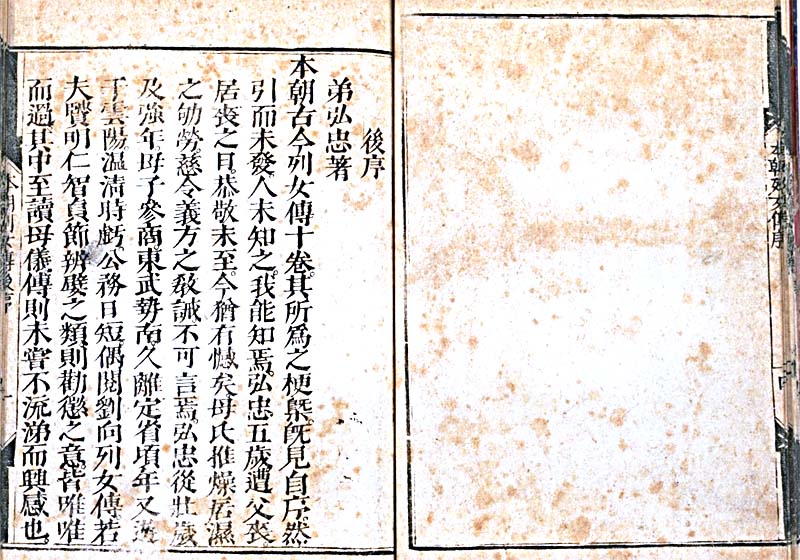 本朝列女傳序
後序
弟弘忠著
本朝古今列女傳十卷。其所爲之梗槩。既見自序。然
引而未發。人未知之。我能知焉。弘忠五歲遭父喪
居喪之日。恭敬未至。今猶有憾矣。母氏推燥居濕
之劬勞。慈令義方之敎誡不可言焉。弘忠從壯歲
及強年。母子參商。東武勢南久離定省。頃年又遷
于雲陽。溫凊時虧。公務日短。偶閱劉向列女傳。若
夫賢明仁智貞節辨嬖之類。則勸懲之意。皆唯唯
而過。其中至讀母儀傳。則未嘗不流涕而興感也。
本朝列女傳後序